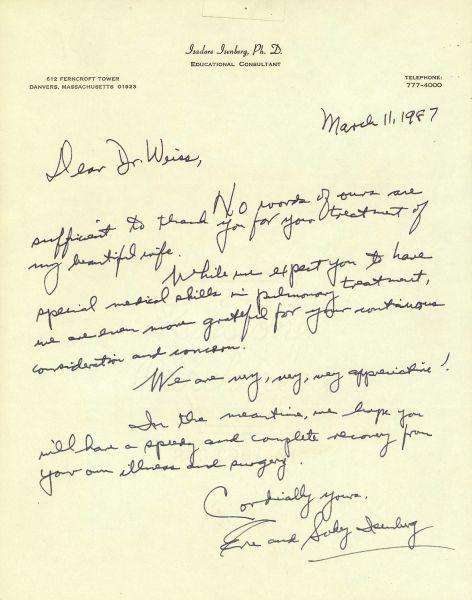 Isadore Isenberg, Ph. D.
EDUCATIONAL CONSULTANT
612 FERNCROFT TOWER
DANVERS, MASSACHUSETTS 01923
TELEPHONE:
777-4000
March 11, 1987
Dear Dr. Weiss,
No words of ours are
sufficient to thank you for your treatment of
my beautiful wife.
While we expect you to have
special medical skills in pulmonary treatment,
we are even more grateful for your continuous
consideration and concern.
We are very, very, very appreciative!
In the meantime, we hope you
will have a speedy and complete recovery from
your own illness and surgery.
Cordially yours,
and Isenberg